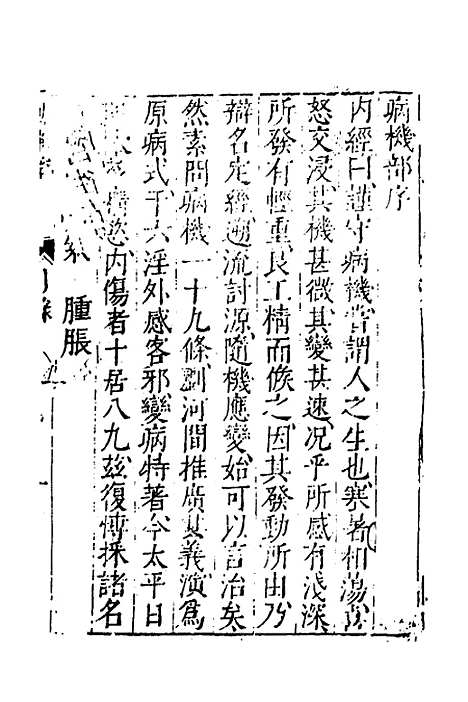 病機部序
內經曰謹守病機嘗謂人之生也寒暑相蕩喜
怒交浸其機甚微其變甚速况乎所感有淺深
所發有輕重良工精而候之因其發動所由乃
辯名定經遡流討源隨機應變始可以言治矣
然素問病機一十九條劉河間推廣其義演爲
原病式于六淫外感客邪變病特著今太平日
慾內傷者十居八九茲復博採諸名
腫脹